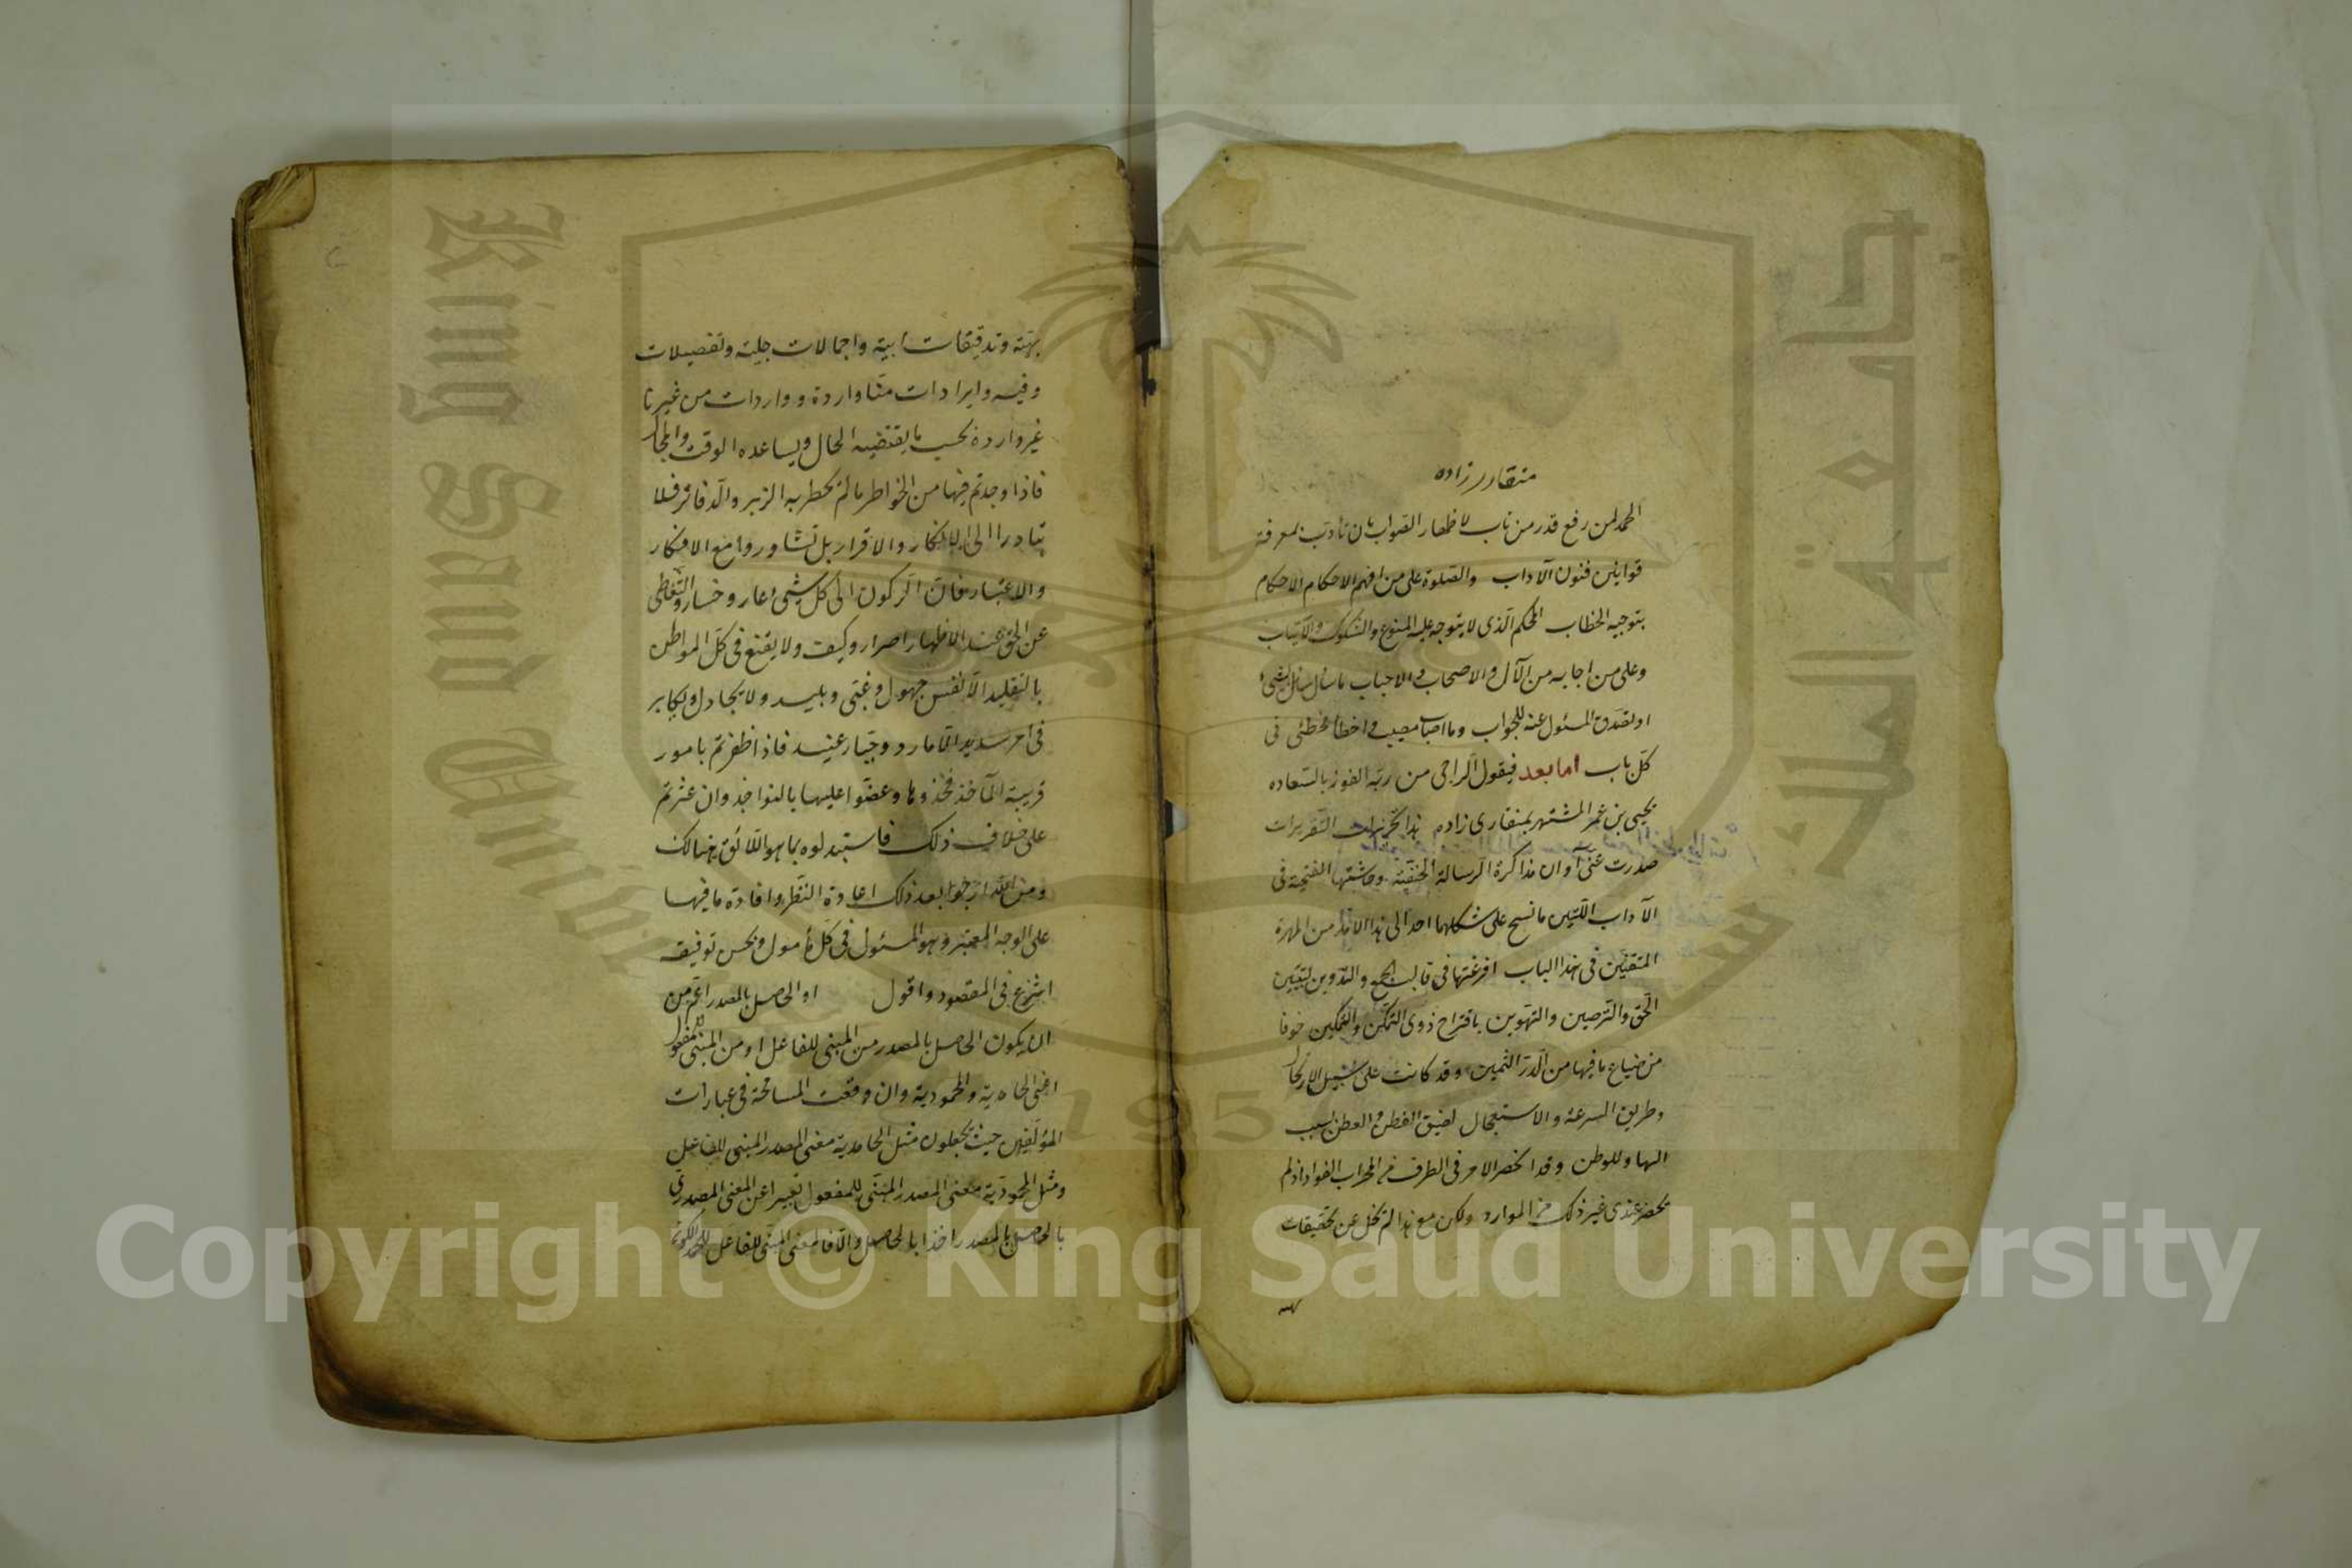 منقار زاده
الحمد لمن رفع قدر من ناب لاظهار الصواب بان تأدب بمعرفة
قوانين فنون الآداب والصلوة على من افهم الاحكام الاحكام
بتوجيه الخطاب المحكم الذى لا يتوجه عليه المنوع والشكوك والارتياب
وعلى من اجابه من الآل والاصحاب والاحباب ما سأل سائل بشئ
او تصدق المسئول عنه للجواب وما اصاب مصيب واخطأ مخطئى فى
كل باب اما بعد فيقول الراجى من ربه الفوز بالسعاده
يحيى بن عمر المشتهر بمنقارى زاده هذا تحريرات التقريرات
صدرت عنى آوان مذاكرة الرسالة الحنفية وحاشيتها الفتحية فى
الآداب اللتين ما نسج على شكلهما احد الى هذا الان من المهرة
المتقنين فى هذا الباب افرغتها فى قالب الجمع والتدوين لتبيين
الحق والترصين والتهوين باقتراح ذوى التمكن والتمكين خوفا
من ضياع ما فيها من الدر الثمين وقد كانت على سبيل الارتجال
وطريق السرعة والاستعجال لضيق الفطن والعطن بسبب
البها وللوطن وقد انحصر الامر فى الطرف من المحراب الفواد اذ لم
يحضر عندى غير ذلك من الموارد ولكن مع هذا لم تخل عن تحقيقات
بهية
بهية وتدقيقات ابية واجمالات جلية وتفصيلات
وفيه وايرادات منا واردة وواردات من غيرنا
غير واردة بحسب ما يقتضيه الحال ويساعده الوقت والمجال
فاذا وجدتم فيها من الخواطر ما لم يخطر به الزبر والدفاتر فلا
تبادرا الى الانكار والاقرار بل تشاوروا مع الافكار
والاعتبار فان الركون الى كل شئ عار وخسار والتغطى
عن الحق عند الاظهار اصرار وكيف ولا يقنع فى كل المواطن
بالتقليد الا نفس جهول وغبى وبليد ولا يجادل ويكابر
فى امر سديد الا مارد وجبار عنيد فاذا ظفرتم بامور
قريبة المآخذ فخذوها وعضوا عليها بالنواجذ وان عثرتم
على خلاف ذلك فاستبدلوه بما هو اللائق بهنالك
ومن الله ارجوا بعد ذلك اعادة النظر وافادة ما فيها
على الوجه المعتبر وهو المسئول فى كل مأمول وبحسن توفيقه
اشرع فى المقصود واقول او الحاصل بالمصدر اعم من
ان يكون الحاصل بالمصدر من المبنى للفاعل او من المبنى للمفعول
اعنى الحامدية والمحمودية وان وقعت المسامحة فى عبارات
المؤلفين حيث يجعلون مثل الحامدية معنى المصدر المبنى للفاعل
ومثل المحمودية معنى المصدر المبنى للمفعول تعبيرا عن المعنى المصدرى
بالحاصل بالمصدر اخذا بالحاصل والا فالمعنى المبنى للفاعل
Copyright © King Saud University
King Saud University
جامعة الملك سعود
1957